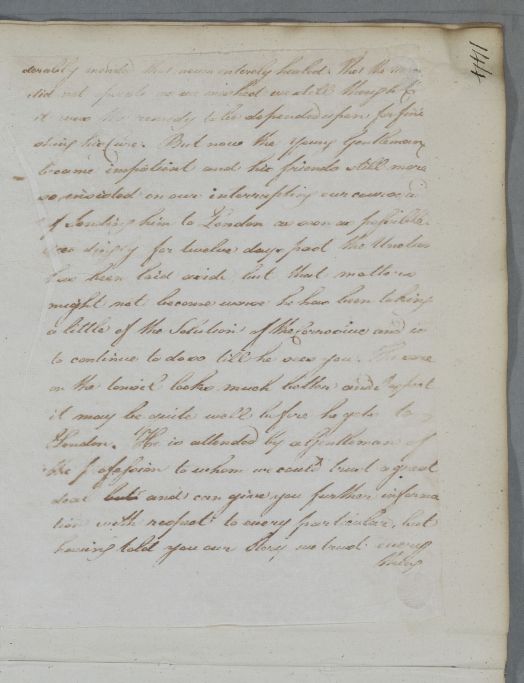 1441
derably mended tho' never entirely healed. Tho' the
did not operate as we wished we still thought
it was the remedy to be depended upon for fini
shing his Cure. But now the Young Gentleman
became impatient and his friends still more
so, insisted on our interrupting our course &
of sending him to London as soon as possible.
Accordingly for twelve days past the Unction
has been laid aside but that matters
might not become worse he has been taking
a little of the Solution of the Corrosive and is
to continue to do so till he sees you. The sore
on the tonsil looks much better and I expect
it may be quite well before he gets to
London. He is attended by a Gentleman of
the Profession to whom we could trust a great
deal and can give you further informa
tion with respect to every particular, but
having told you our Story we trust every
thing